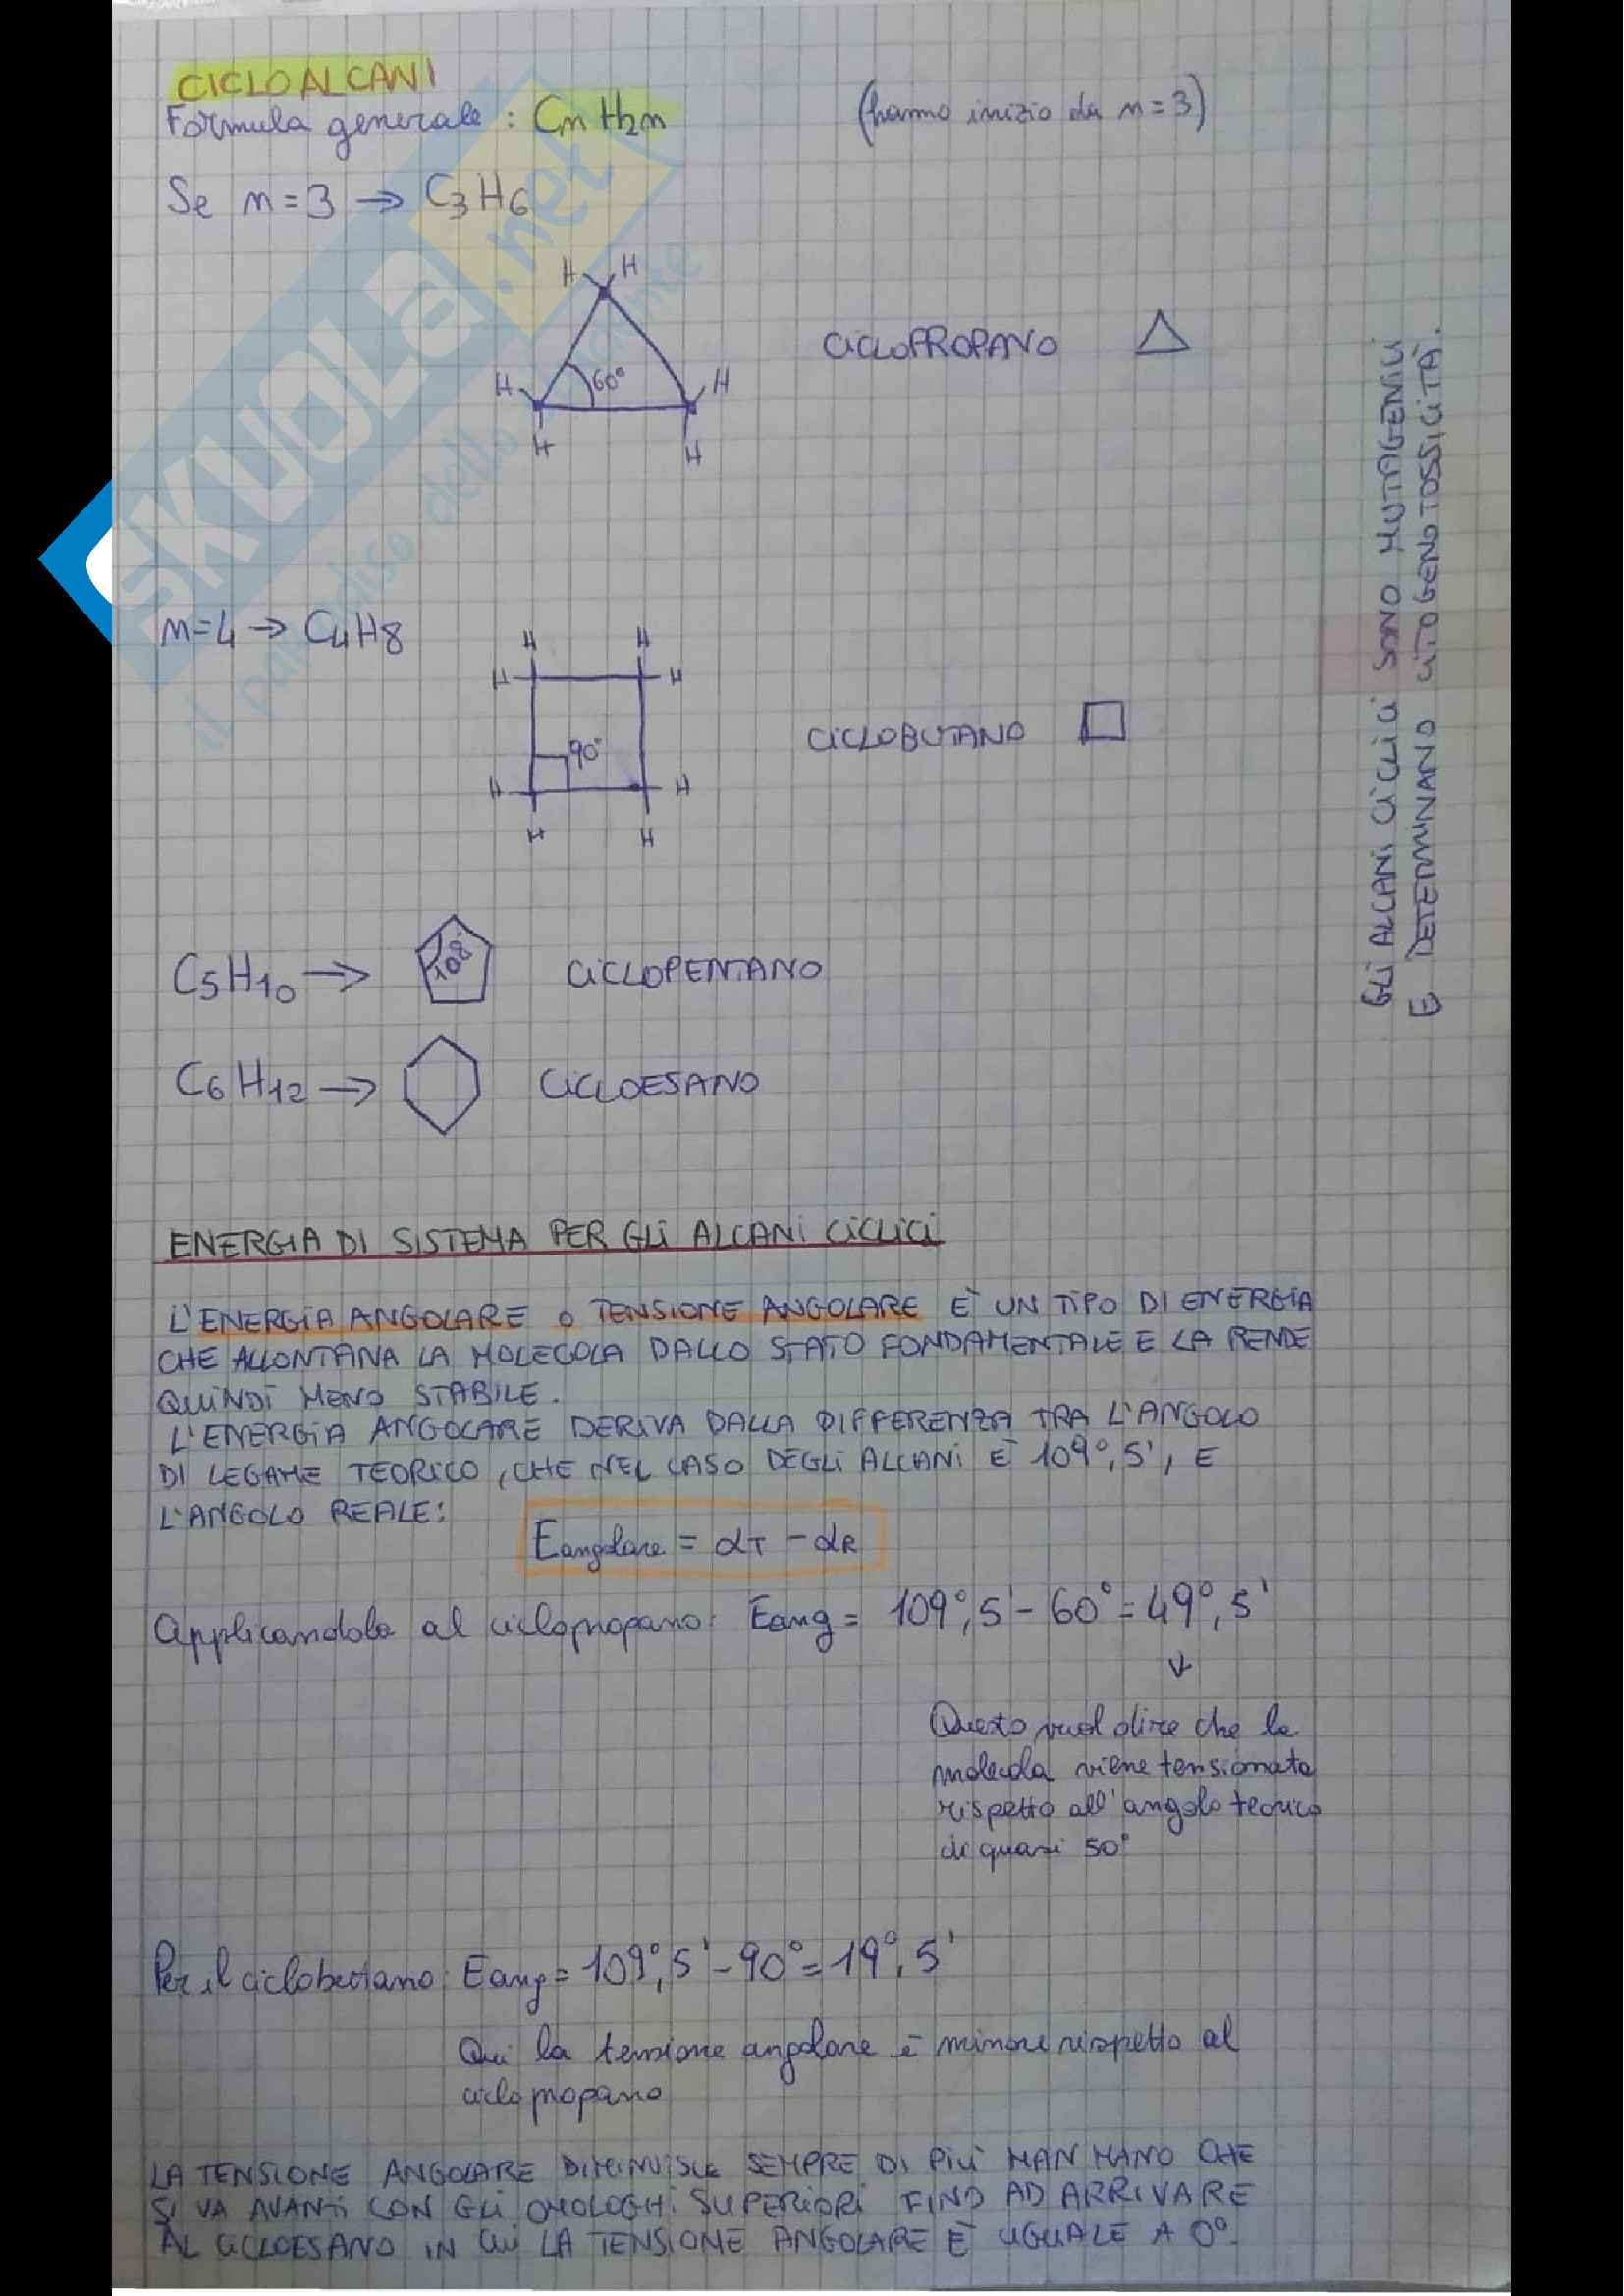 CICLOALCANI
Formula generale: CnH2n (hanno inizio da n=3)
Se n=3 → C3H6
H H
H 60° H
H H
CICLOPROPANO
n=4 → C4H8
H H
H H
90°
H H
H H
CICLOBUTANO
C5H10 → 108° CICLOPENTANO
C6H12 → CICLOESANO
GLI ALCANI CICLICI SONO MUTAGENICI
E DETERMINANO CITOGENOTOSSICITÀ.
ENERGIA DI SISTEMA PER GLI ALCANI CICLICI
L'ENERGIA ANGOLARE o TENSIONE ANGOLARE È UN TIPO DI ENERGIA
CHE ALLONTANA LA MOLECOLA DALLO STATO FONDAMENTALE E LA RENDE
QUINDI MENO STABILE.
L'ENERGIA ANGOLARE DERIVA DALLA DIFFERENZA TRA L'ANGOLO
DI LEGAME TEORICO, CHE NEL CASO DEGLI ALCANI È 109°,5', E
L'ANGOLO REALE:
Eangolare = αT - αR
Applicandola al ciclopropano: Eang = 109°,5' - 60° = 49°,5'
↓
Questo vuol dire che la
molecola viene tensionata
rispetto all'angolo teorico
di quasi 50°
Per il ciclobutano: Eang = 109°,5' - 90° = 19°,5'
Qui la tensione angolare è minore rispetto al
ciclopropano
LA TENSIONE ANGOLARE DIMINUISCE SEMPRE DI PIÙ MAN MANO CHE
SI VA AVANTI CON GLI OMOLOGHI SUPERIORI FINO AD ARRIVARE
AL CICLOESANO IN CUI LA TENSIONE ANGOLARE È UGUALE A 0°.
SKUOLA.net
il paradiso dello studente